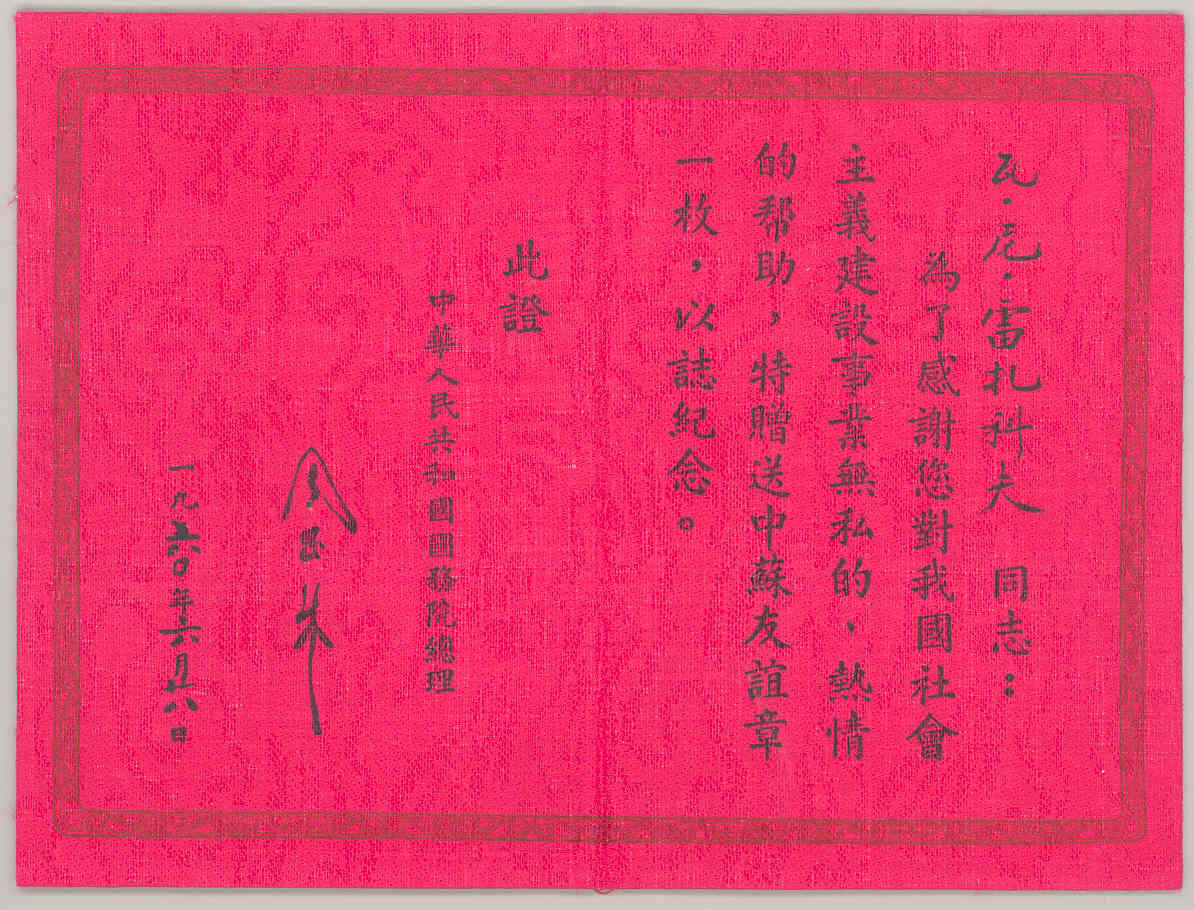 瓦·尼·雷扎科夫 同志：
為了感謝您對我國社會
主義建設事業無私的、熱情
的帮助，特贈送中蘇友誼章
一枚，以誌紀念。
此證
中華人民共和國國務院總理
周恩来
一九六〇年六月廿八日